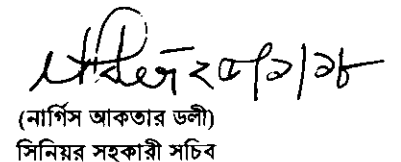 ২৫/১/১৮
(নার্গিস আকতার ডলী)
সিনিয়র সহকারী সচিব